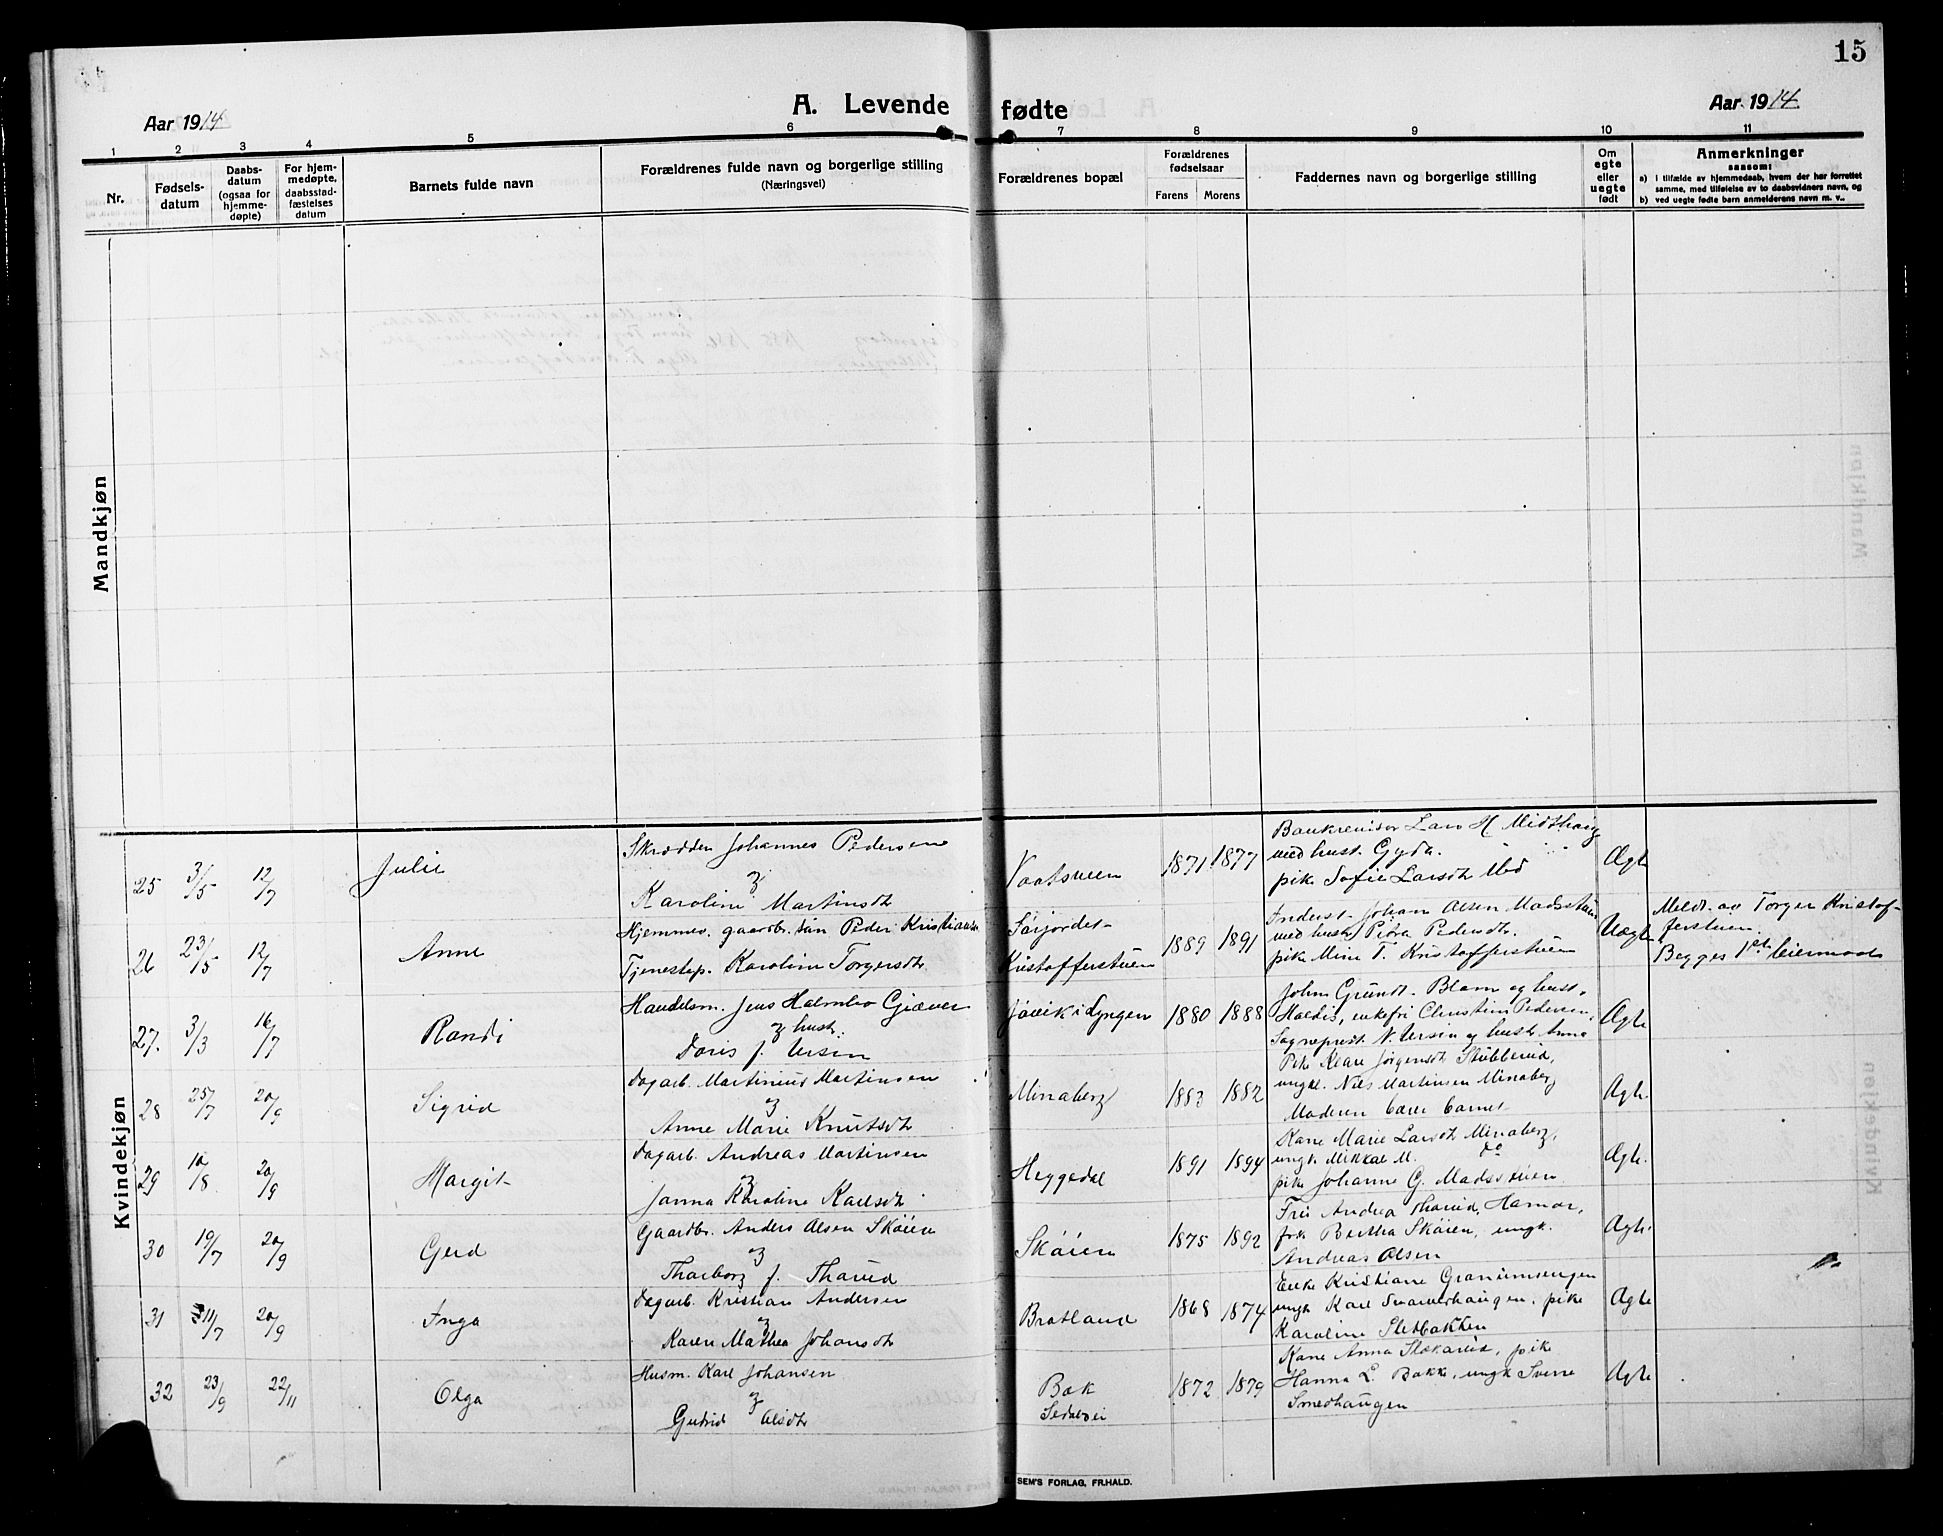 15
Aar 1914
A. Levende fødte
Aar 1914
1 2 3 4 5 6 7 8 9 10 11
Nr.
Fødsels-
datum
Daabs-
datum
(ogsaa for
hjemme-
døpte)
For hjem-
medøpte,
daabsstad-
fæstelses
datum
Barnets fulde navn
Forældrenes fulde navn og borgerlige stilling
(Næringsvei)
Forældrenes bopæl
Forældrenes
fødselsaar
Farens Morens
Faddernes navn og borgerlige stilling
Om
egte
eller
uegte
født
Anmerkninger
saasom:
a) i tilfælde av hjemmedaab, hvem der har forrettet
samme, med tilføielse av to daabsvidners navn, og
b) ved uegte fødte barn anmelderens navn m. v..
Mandkjøn
Kvindekjøn
25 3/5 12/7 Julie
Skrædder Johannes Pedersen
og
Karoline Martinsdtr
1871 1877
Bankrevisor Lars H. Midthaug
med hust. Gyda.
pike Sofie Larsdtr
Ægte
26 23/5 12/7 Anne
Hjemmev. gaardbr. søn Peder Kristiansen
Tjenestep. Karoline Torgersdtr.
Sørjordet
Kristofferstuen
1889 1891
Inderst Johan Olsen Madsstuen
med hust. Petra Pedersdtr.
pike Mina T. Kristofferstuen
Uægte
Meldt av Torger Kristof-
ferstuen.
Begges 1ste leiermaal
27. 3/3 16/7 Randi
Handelsm. Jens Halmbo Gjæver
og hust.
Doris f. Ursin
Jøvik i Lyngen
1880 1888
John Grundt. Blom og hust.
Haldis, enkefru Christine Pedersen,
N. Ursin og hust. Anna
Ægte
28 25/7 20/9 Sigrid
Dagarb. Martinius Martinsen
og
Anne Marie Knutsdtr
Minaberg
1883 1882
Pike Klare Jørgensdtr Stubberud,
ungk. Nils Martinsen Minaberg
Moderen bærer barnet
Ægte.
29 10/8 20/9 Margit
Dagarb. Andreas Martinsen
og
Janna Karoline Karlsdtr
Heggedal
1891 1894
Kone Marie Larsdtr Minaberg,
ungk. Mikkal M. do
pike Johanne G. Madsstuen
Ægte.
30 19/7 20/9 Gerd
Gaardbr. Anders Olsen Skøien
og
Tharborg f. Tharud
Skøien
1875 1892
Fru Andrea Tharud, Hamar,
frk Bertha Skøien, ungk.
Andreas Olsen
Ægte.
31 11/7 20/9 Inga
Dagarb. Kristian Andersen
og
Karen Mathea Johansdtr
Bratland
1868 1874
Enke Kristiane Granumsengen
ungk Karl Svarverhaugen, pike
Karoline Sletbakken
Ægte
32 23/9 22/11 Olga
Husm. Karl Johansen
og
Gudrid Olsdtr
Bak
1872 1879
Kone Anna Slokarud, pike
Hanna L. Bakke, ungk Sverre
Smedhaugen
Ægte
SEM'S FORLAG, FR.HALD.